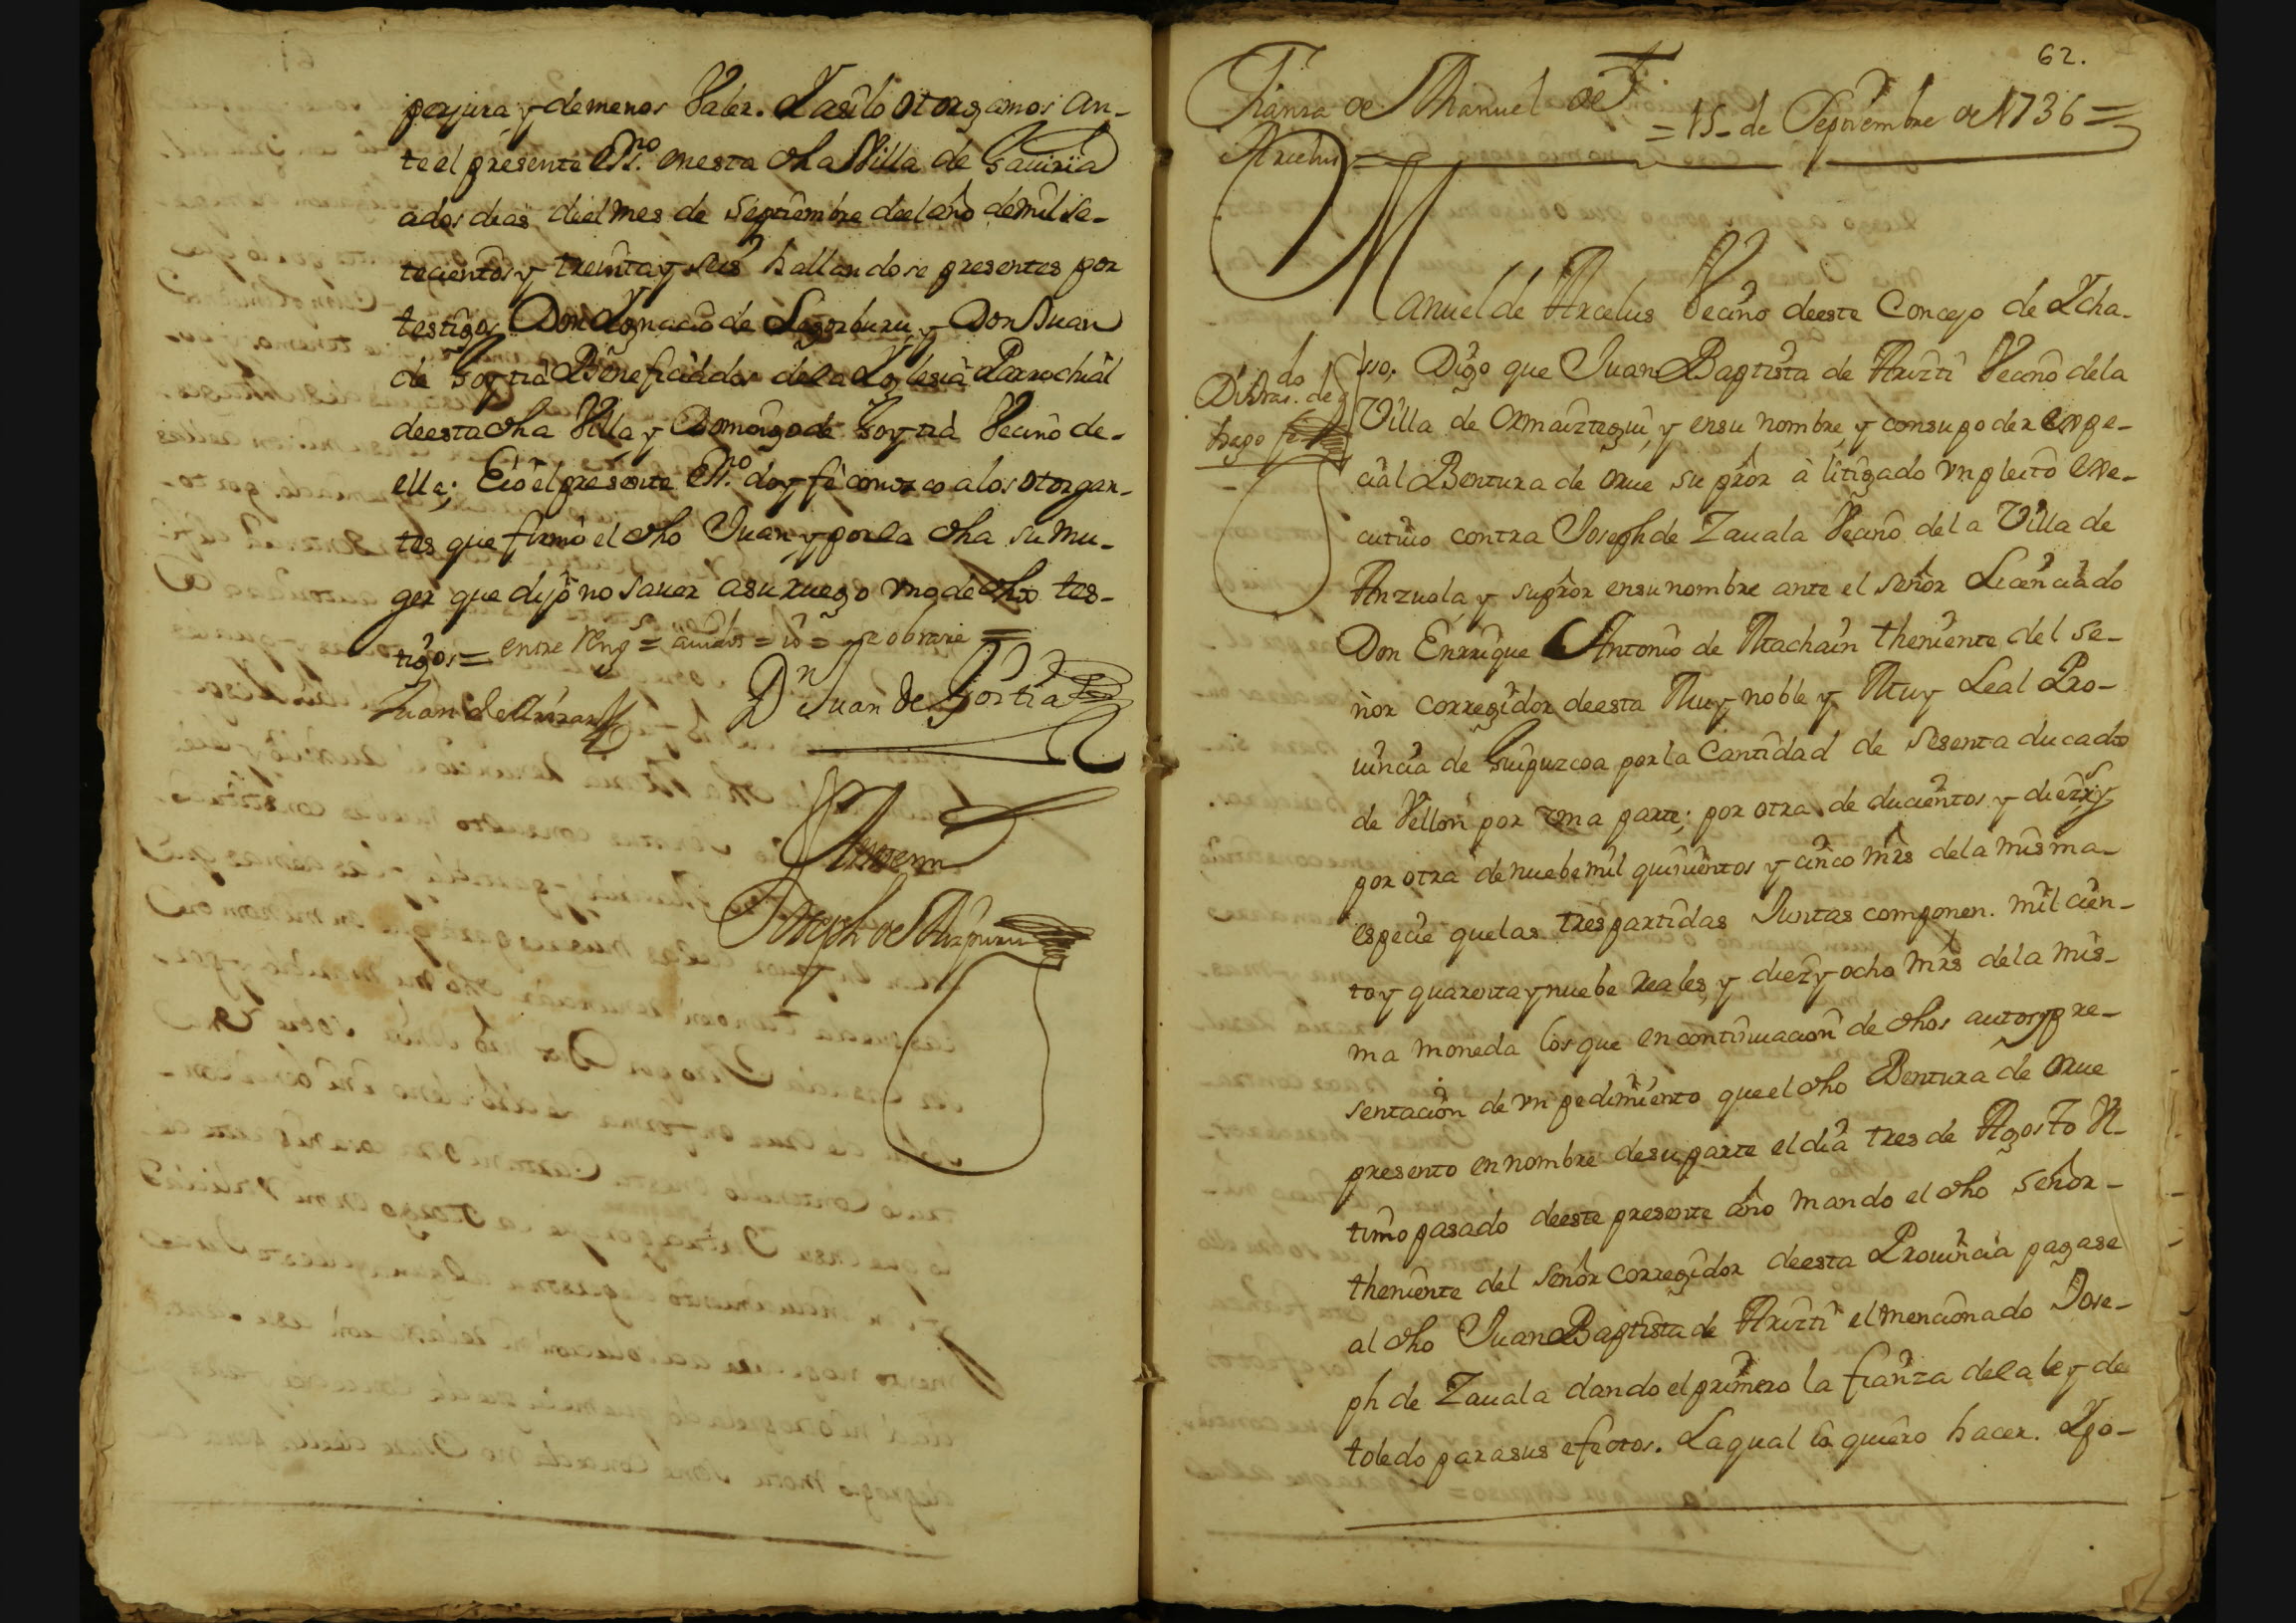 perjura y de menos Valer. Y asilo otorgamos an-
te el presente Ess.no en esta dha Villa de Gauiria
a dos dias del mes de Septiembre del año de mil se-
tecientos y treinta y seis hallandose presentes por
testigos Don Ygnacio de Legorburu, y Don Juan
de Goytia Beneficiados de la Yglesia Parrochial
de esta dha Villa y Domingo de Goytia Vecino de-
ella; E io el presente Ess.no doy fe conozco a los otorgan-
tes que firmó el dho Juan y por la dha su mu-
ger que dijo no sauer a su ruego vno de dhos tes-
tigos = entre reng.s = = io = y obrare =
Juan de
Dn Juan de Goitia
Ante mi
Joseph de Aizpuru
62.
Fianza de Manuel de
Arcelus
= 15 - de Septiembre de 1736 =
Manuel de Arcelus Vecino de este Concejo de Ycha-
so, Digo que Juan Baptista de Arizti Vecino de la
Villa de Ormaiztegui, y en su nombre, y con su poder espe-
cial Bentura de Orue su pror à litigado vn pleito exe-
cutiuo contra Joseph de Zauala Vecino de la Villa de
Anzuola, y su pror en su nombre ante el señor Licenciado
Don Enrrique Antonio de Machain theniente del se-
ñor corregidor de esta Muy noble y Muy Leal Pro-
uincia de Guipuzcoa por la Cantidad de sesenta ducados
de Vellon por vna parte; por otra de ducientos y diez rs y
por otra de nuebe mil quinientos y cinco mrs de la misma
especie que las tres partidas Juntas componen. mil cien-
to y quarenta y nuebe reales, y diez y ocho mrs de la mis-
ma moneda los que en continuacion de dhos autos y pre-
sentacion de vn pedimiento que el dho Bentura de Orue
presento en nombre de su parte el dia tres de Agosto Vl-
timo pasado de este presente año mando el dho señor -
theniente del señor corregidor de esta Prouincia pagase
al dho Juan Baptista de Arizti el mencionado Jose-
ph de Zauala dando el primero la fianza de la ley de
toledo para sus efectos. La qual la quiero hacer. Y po-